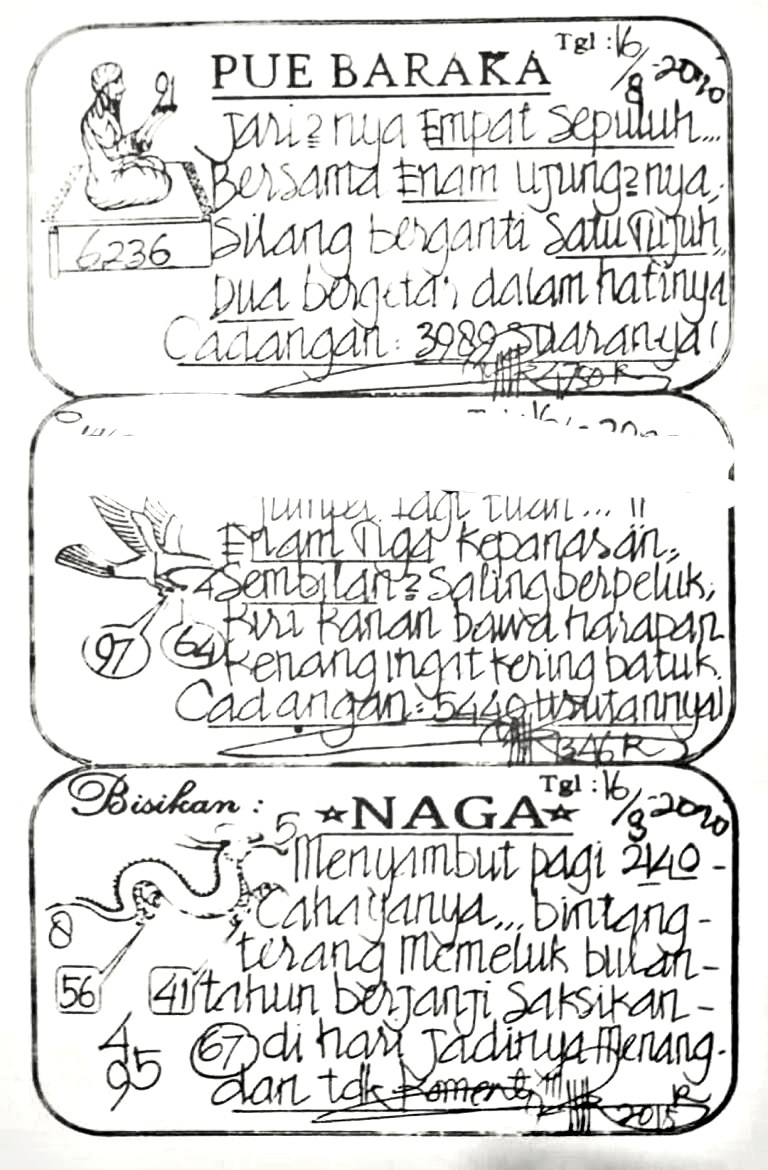 PUE BARAKA Tgl : 16/8-2020
91
Jari2nya Empat Sepuluh...
Bersama Enam ujung2nya,
6236
Silang berganti Satu Tujuh,
Dua bergetar dalam hatinya
Cadangan: 3989 Suaranya!
4750 R
jumpa lagi tuan... !!
Enam Tiga kepanasan,
4 Sembilan2 Saling berpeluk,
97 64
Kiri kanan bawa harapan
Kenang ingat kering batuk.
Cadangan: 5440 Urutannya!
1346 R
Bisikan : NAGA Tgl : 16/8-2020
5
Menyambut pagi 2140 -
8
Cahayanya... bintang -
terang Memeluk bulan -
56 41
tahun berjanji Saksikan -
4 95
67
di hari jadinya Menang -
dan tdk Koment !!!
2015 R